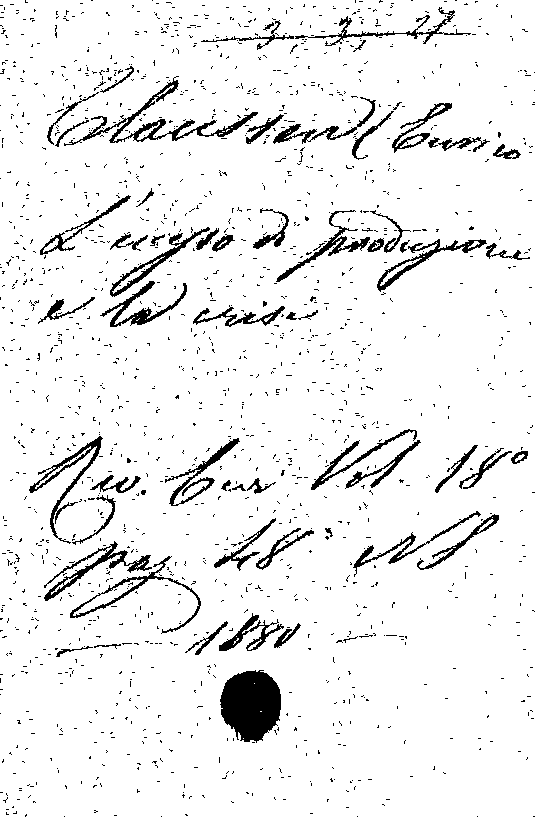 3, 3, 27
Claussen (Enrico
L'eccesso di produzione
e la crisi
Riv. Eur. Vol. 18°
pag 48 NS
1880